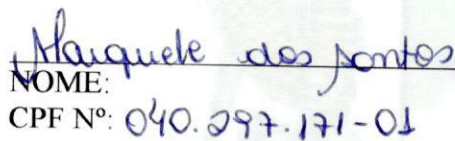 Marquele dos santos
NOME:
CPF Nº: 040.297.171-01